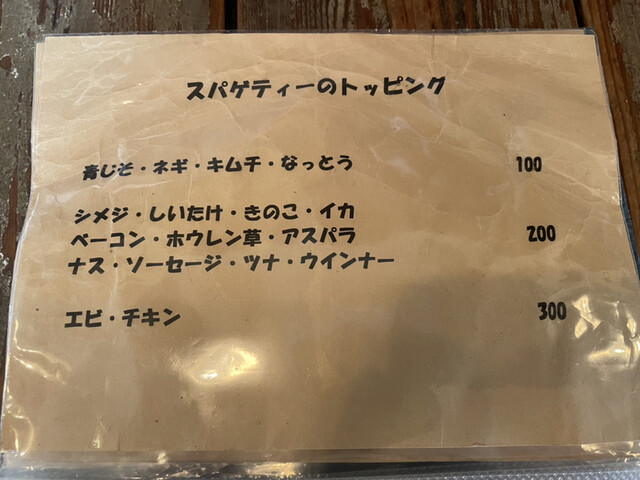 スパゲティーのトッピング
青じそ・ネギ・キムチ・なっとう 100
シメジ・しいたけ・きのこ・イカ
ベーコン・ホウレン草・アスパラ 200
ナス・ソーセージ・ツナ・ウインナー
エビ・チキン 300